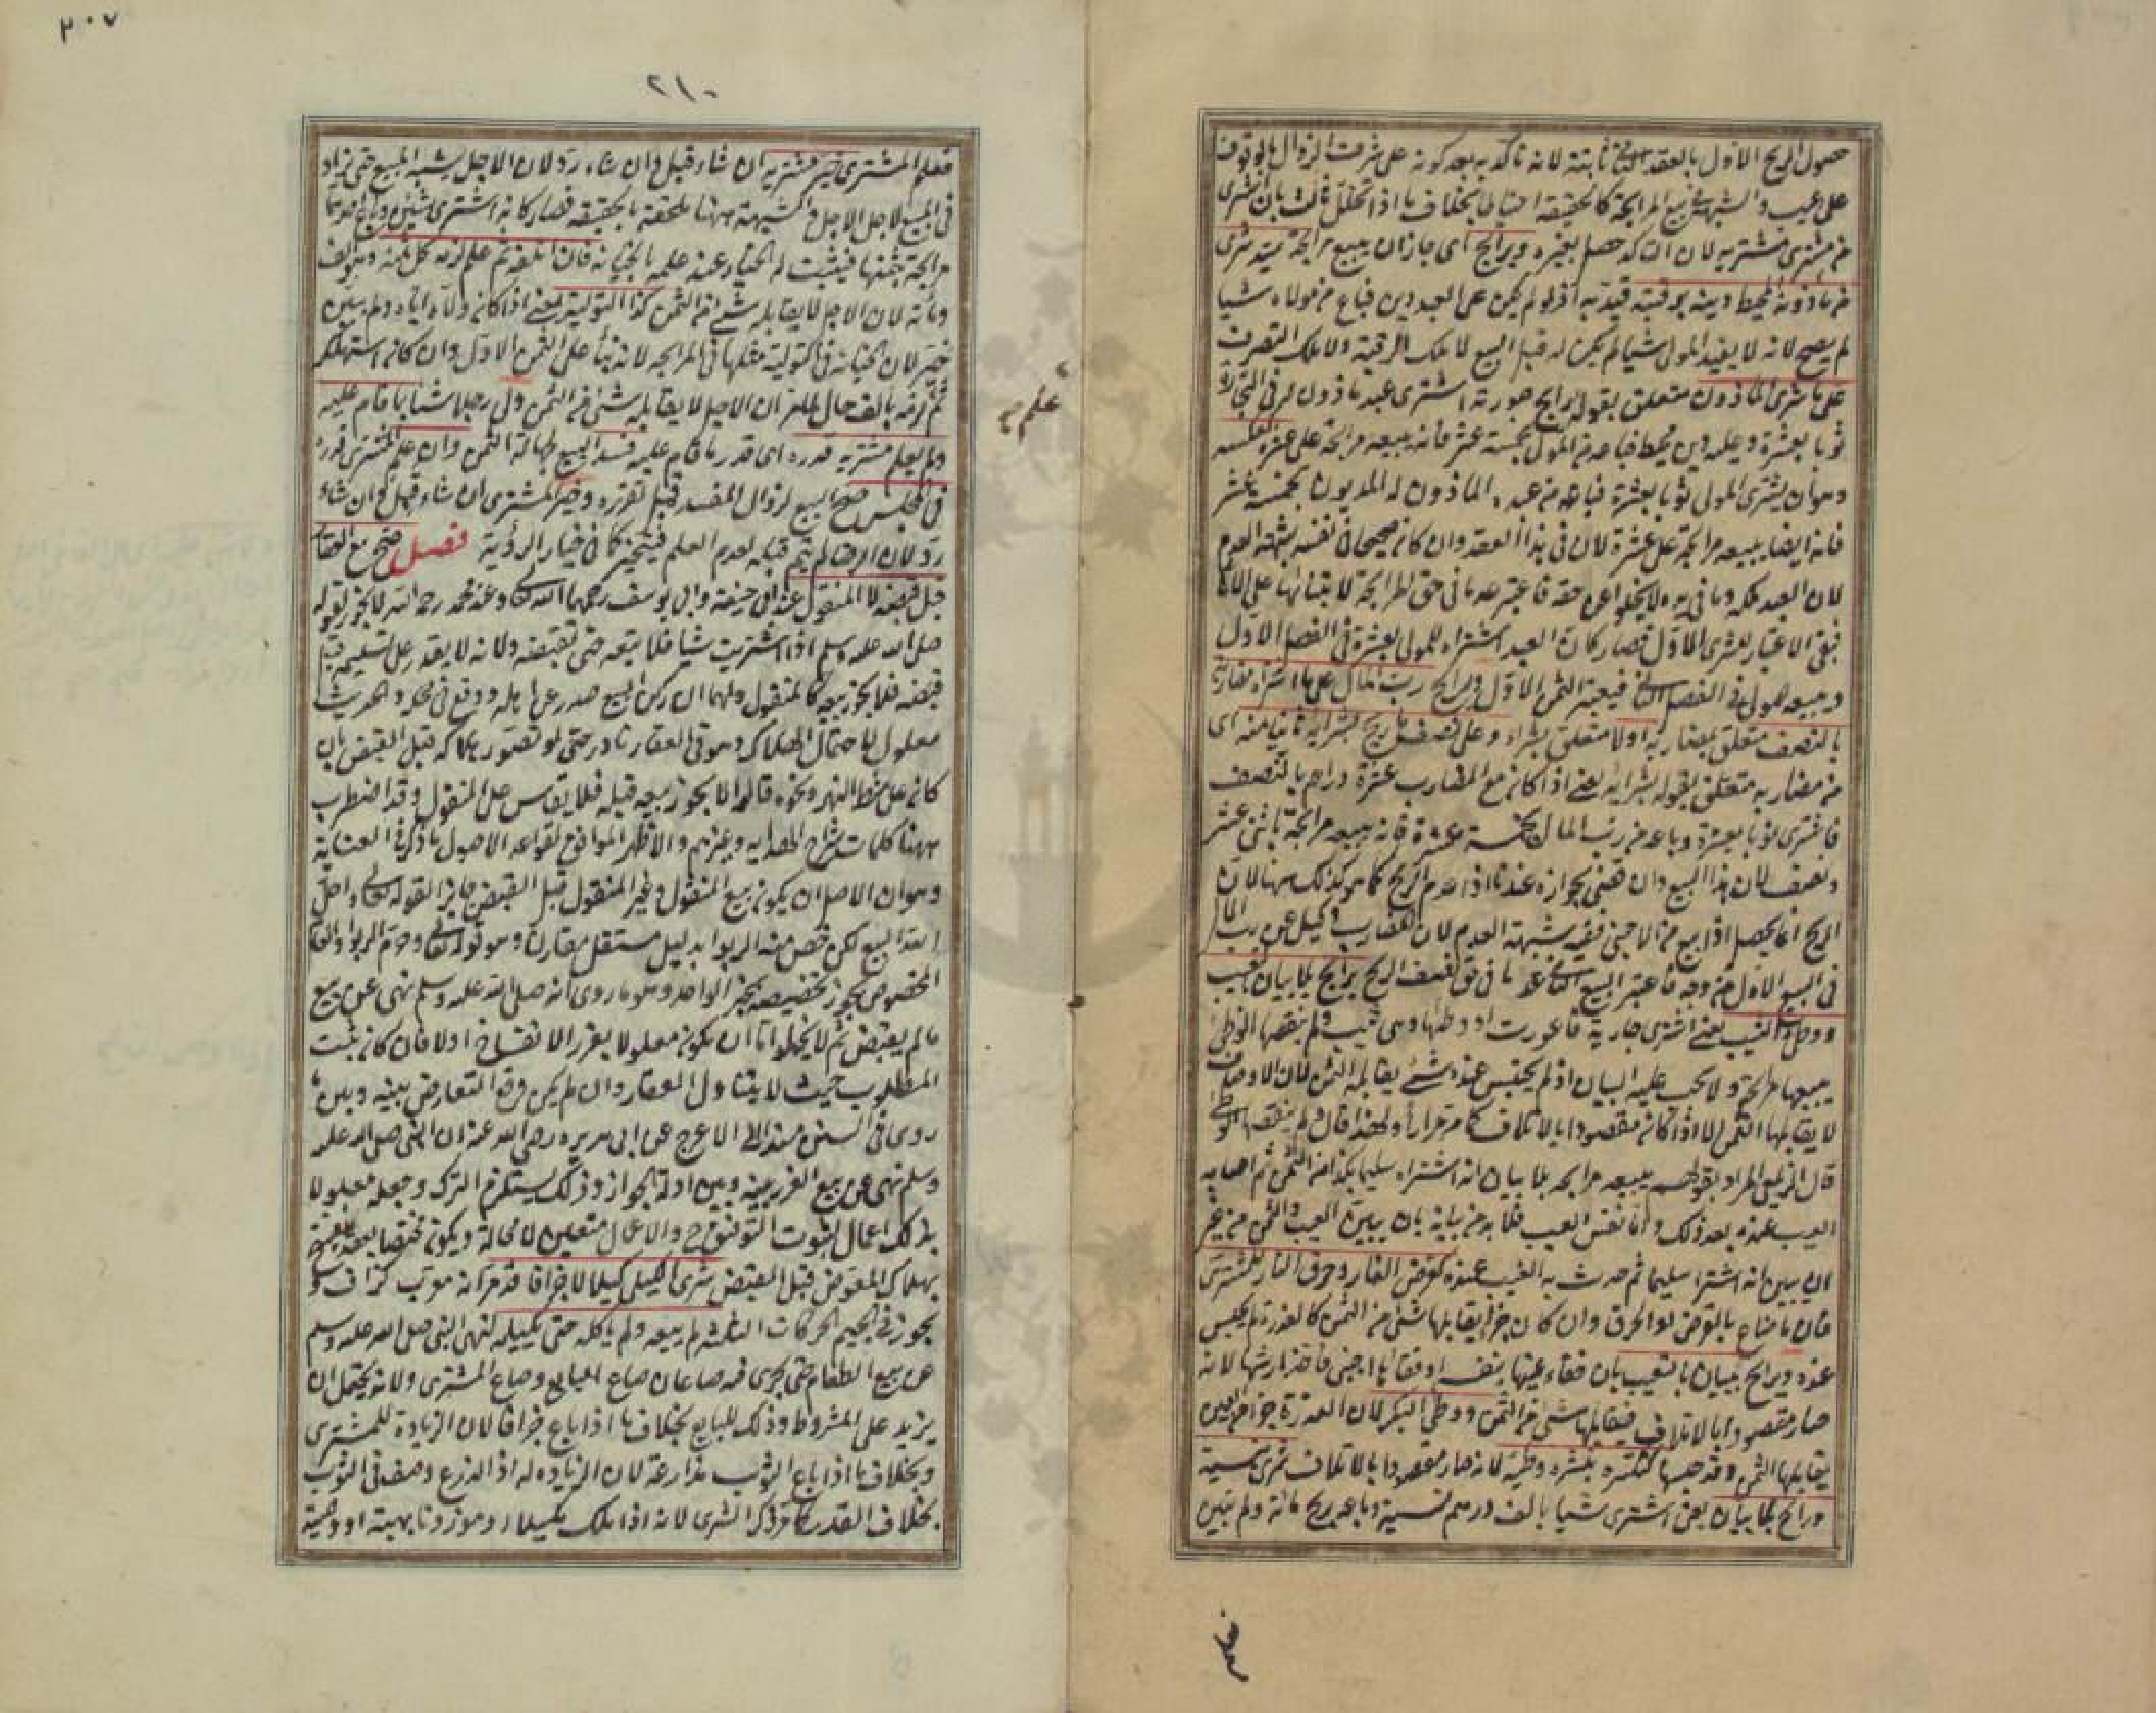 حصول الربح الأول بالعقد الثاني ثابتة لانه تأكد به بعد كونه على شرف الزوال بالوقوف
على عيب والشبهة في بيع المرابحة كالحقيقة احتياطا بخلاف ما اذا تخلل ثالث بان اشترى
من مشترى مشتريه لان التأكد حصل بغيره ورابح اى جاز ان يبيع مرابحة سيد شرى
من مأذونه المحيط دينه برقبته قيد به اذ لو لم يكن على العبد دين فباع من مولاه شيا
لم يصح لانه لا يفيد المولى شيا لم يكن له قبل البيع لا ملك الرقبة ولا ملك التصرف
على ما شرى المأذون متعلق بقوله رابح صورته اشترى عبد مأذون له فى التجارة
ثوبا بعشرة وعليه دين محيط فباعه من المولى بخمسة عشر فانه يبيعه مرابحة على عشرة كعكسه
وهو ان يشترى المولى ثوبا بعشرة فباعه من عبده المأذون له المديون بخمسة عشر
فانه ايضا يبيعه مرابحة على عشرة لان فى هذا العقد وان كان صحيحا فى نفسه شبهة العدم
لان العبد ملكه وما فى يده لا يخلو عن حقه فاعتبر عدما فى حق المرابحة لابتنائها على الامانة
فبقى الاعتبار للشرى الاول فصار كان العبد اشتراه للمولى بعشرة فى الفصل الاول
ويبيعه للمولى فى الفصل الثانى فيعتبر الثمن الاول ورابح رب المال على ما اشتراه مضاربه
بالنصف متعلق بمضاربه اولا متعلق بشراه وعلى نصف ما ربح بشرائه ثانيا منه اى
من مضاربه متعلق بقوله بشرائه يعنى اذا كان مع المضارب عشرة دراهم بالنصف
فاشترى ثوبا بعشرة وباعه من رب المال بخمسة عشرة فانه يبيعه مرابحة باثنى عشر
ونصف لان هذا البيع وان قضى بجوازه عندنا اذا عدم الربح كما هو كذلك ههنا لان
الربح انما يحصل اذا بيع من الاجنبى ففيه شبهة العدم لان المضارب وكيل عن رب المال
فى البيع الاول من وجه فاعتبر البيع الثانى عدما فى حق نصف الربح رابح بلا بيان تعيب
ووطى الثيب يعنى اشترى جارية فاعورت او وطئها وهى ثيب ولم ينقصها الوطى
يبيعها مرابحة ولا يجب عليه البيان اذ لم يحتبس عنده شئ يقابله الثمن لان الاوصاف
لا يقابلها الثمن الا اذا كانت مقصودا بالاتلاف كما مر مرارا ولهذا قال ولم ينقصها الوطى
قال الزيلعى المراد بقولهم يبيعه مرابحة بلا بيان انه اشتراه سليما بكذا من الثمن ثم اصابه
العيب عنده بعد ذلك واما نفس العيب فلا بد من بيانه بان يبين العيب والثمن من غير
ان يبين انه اشتراه سليما ثم حدث به العيب عنده كقرض الفار وحرق النار للمشترى
فان ما ضاع بالقرض او الحرق وان كان جزأ يقابلها شئ من الثمن كالعذرة لم يحتبس
عنده ورابح ببيان بالتعييب بان فقاء عينها بنفسه او فقأها اجنبى فاخذ ارشها لانه
صار مقصودا بالاتلاف فيقابلها شئ من الثمن ووطى البكر لان العذرة جزء من العين
يقابلها الثمن وقد حبسها كتكسره بنشره وطيه لانه صار مقصودا بالاتلاف شرى بنسيئة
ورابح بلا بيان يعنى اشترى شيا بالف درهم نسيئة وباعه بربح مائة ولم يبين
علم
٣٠٧
٢١٠
فعلم المشترى خير مشتريه ان شاء قبل وان شاء رد لان الاجل يشبه المبيع حتى يزاد
فى المبيع لاجل الاجل والشبهة ههنا ملحقة بالحقيقة فصار كانه اشترى شيئين وباع احدهما
مرابحة بثمنهما فيثبت له الخيار عند علمه بالخيانة فان اتلفه ثم علم لزمه كل ثمنه وهو الف
ومائة لان الاجل لا يقابله شئ من الثمن كذا التولية يعنى اذا كان ولاه اياه ولم يبين
خير لان الخيانة فى التولية مثلها فى المرابحة لانه بناء على الثمن الاول وان كان استهلكه
ثم لزمه بالف حال لما مر ان الاجل لا يقابله شئ من الثمن ولى رجلا شيا بما قام عليه
ولم يعلم مشتريه قدره اى قدر ما قام عليه فسد البيع لجهالة الثمن وان علم المشترى قدره
فى المجلس صح البيع لزوال المفسد قبل تقرره وخير المشترى ان شاء قبل وان شاء
رد لان الرضا لم يتم قبله لعدم العلم فيتخير كما فى خيار الرؤية فصل صح بيع العقار
قبل قبضه لا المنقول عند ابى حنيفة وابى يوسف رحمهما الله تعالى وعند محمد رحمه الله لا يجوز لقوله
صلى الله عليه وسلم اذا اشتريت شيا فلا تبعه حتى تقبضه ولانه لا يقدر على تسليمه قبل
قبضه فلا يجوز بيعه كالمنقول ولهما ان ركن البيع صدر عن اهله ووقع فى محله والحديث
معلول باحتمال الهلاك وهو فى العقار نادر حتى لو تصور هلاكه قبل القبض بان
كان على شط النهر ونحوه قالوا لا يجوز بيعه قبله فلا يقاس على المنقول وقد اضطرب
ههنا كلمات شراح الهدايه وغيرهم والاظهر الموافق لقواعد الاصول ما ذكر فى العناية
وهو ان الاصل ان يكون بيع المنقول وغير المنقول قبل القبض جائز القوله تعالى واحل
الله البيع لكن خص منه الربوا بدليل مستقل مقارن وهو قوله تعالى وحرم الربوا والعام
المخصوص يجوز تخصيصه بخبر الواحد وهو ما روى انه صلى الله عليه وسلم نهى عن بيع
ما لم يقبض ثم لا يخلو اما ان يكون معلولا بغرر الانفساخ اولا فان كان ثبت
المطلوب حيث لا يتناول العقار وان لم يكن وقع التعارض بينه وبين ما
روى فى السنن مسندا الى الاعرج عن ابى هريره رضى الله عنه ان النبى صلى الله عليه
وسلم نهى عن بيع الغرر بينه وبين ادلة الجواز وذلك يستلزم الترك وجعله معلولا
بذلك اعمال لثبوت التوفيق ح والاعمال متعين لا محالة ويكون مختصا بعقد ينفسخ
بهلاك المعوض قبل القبض شرى الكيلى كيلا لا جزافا قد مر انه معرب كزاف
يجوز فى الجيم الحركات الثلث لم يبعه ولم يأكله حتى يكيله لنهى النبى صلى الله عليه وسلم
عن بيع الطعام حتى يجرى فيه صاعان صاع البايع وصاع المشترى ولانه يحتمل ان
يزيد على المشروط وذلك للبايع بخلاف ما اذا باع جزافا لان الزيادة للمشترى
وبخلاف ما اذا باع الثوب مذارعة لان الزيادة له اذ الذرع وصف فى الثوب
بخلاف القدر كما مر ذكر الشرى لانه اذا ملك مكيلا او موزونا بهبة او وصية